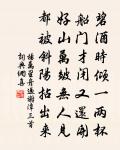 碧酒時傾一兩杯
船門才閉又還開
好山萬皺無人見
都被斜陽拈出來
楊萬里舟過謝潭三首
詞典網